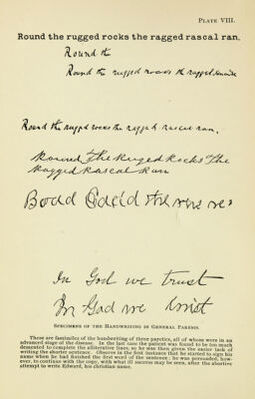 PLATE VIII.
Round the rugged rocks the ragged rascal ran.
Round the
Round the rugged rocks the ragged
Round the rugged rocks the ragged rascal ran.
Round The Ruged Rocks The
Ragged Rascal Run
In God we trust
In God we
SPECIMENS OF THE HANDWRITING IN GENERAL PARESIS.
These are facsimiles of the handwriting of three paretics, all of whom were in an
advanced stage of the disease. In the last case the patient was found to be too much
demented to complete the alliterative lines, so he was then given the easier task of
writing the shorter sentence. Observe in the first instance that he started to sign his
name when he had finished the first word of the sentence; he was persuaded, how-
ever, to continue with the copy, with what ill success may be seen, after the abortive
attempt to write Edward, his christian name.